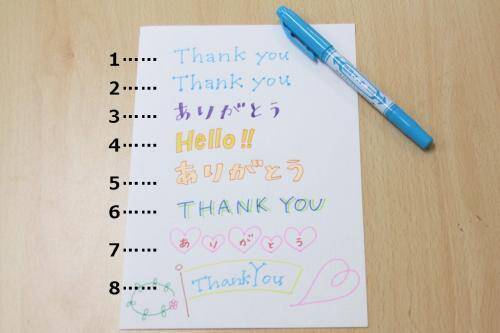 1…… Thank you
2…… Thank you
3…… ありがとう
4…… Hello!!
5…… ありがとう
6…… THANK YOU
7…… ありがとう
8…… Thank You